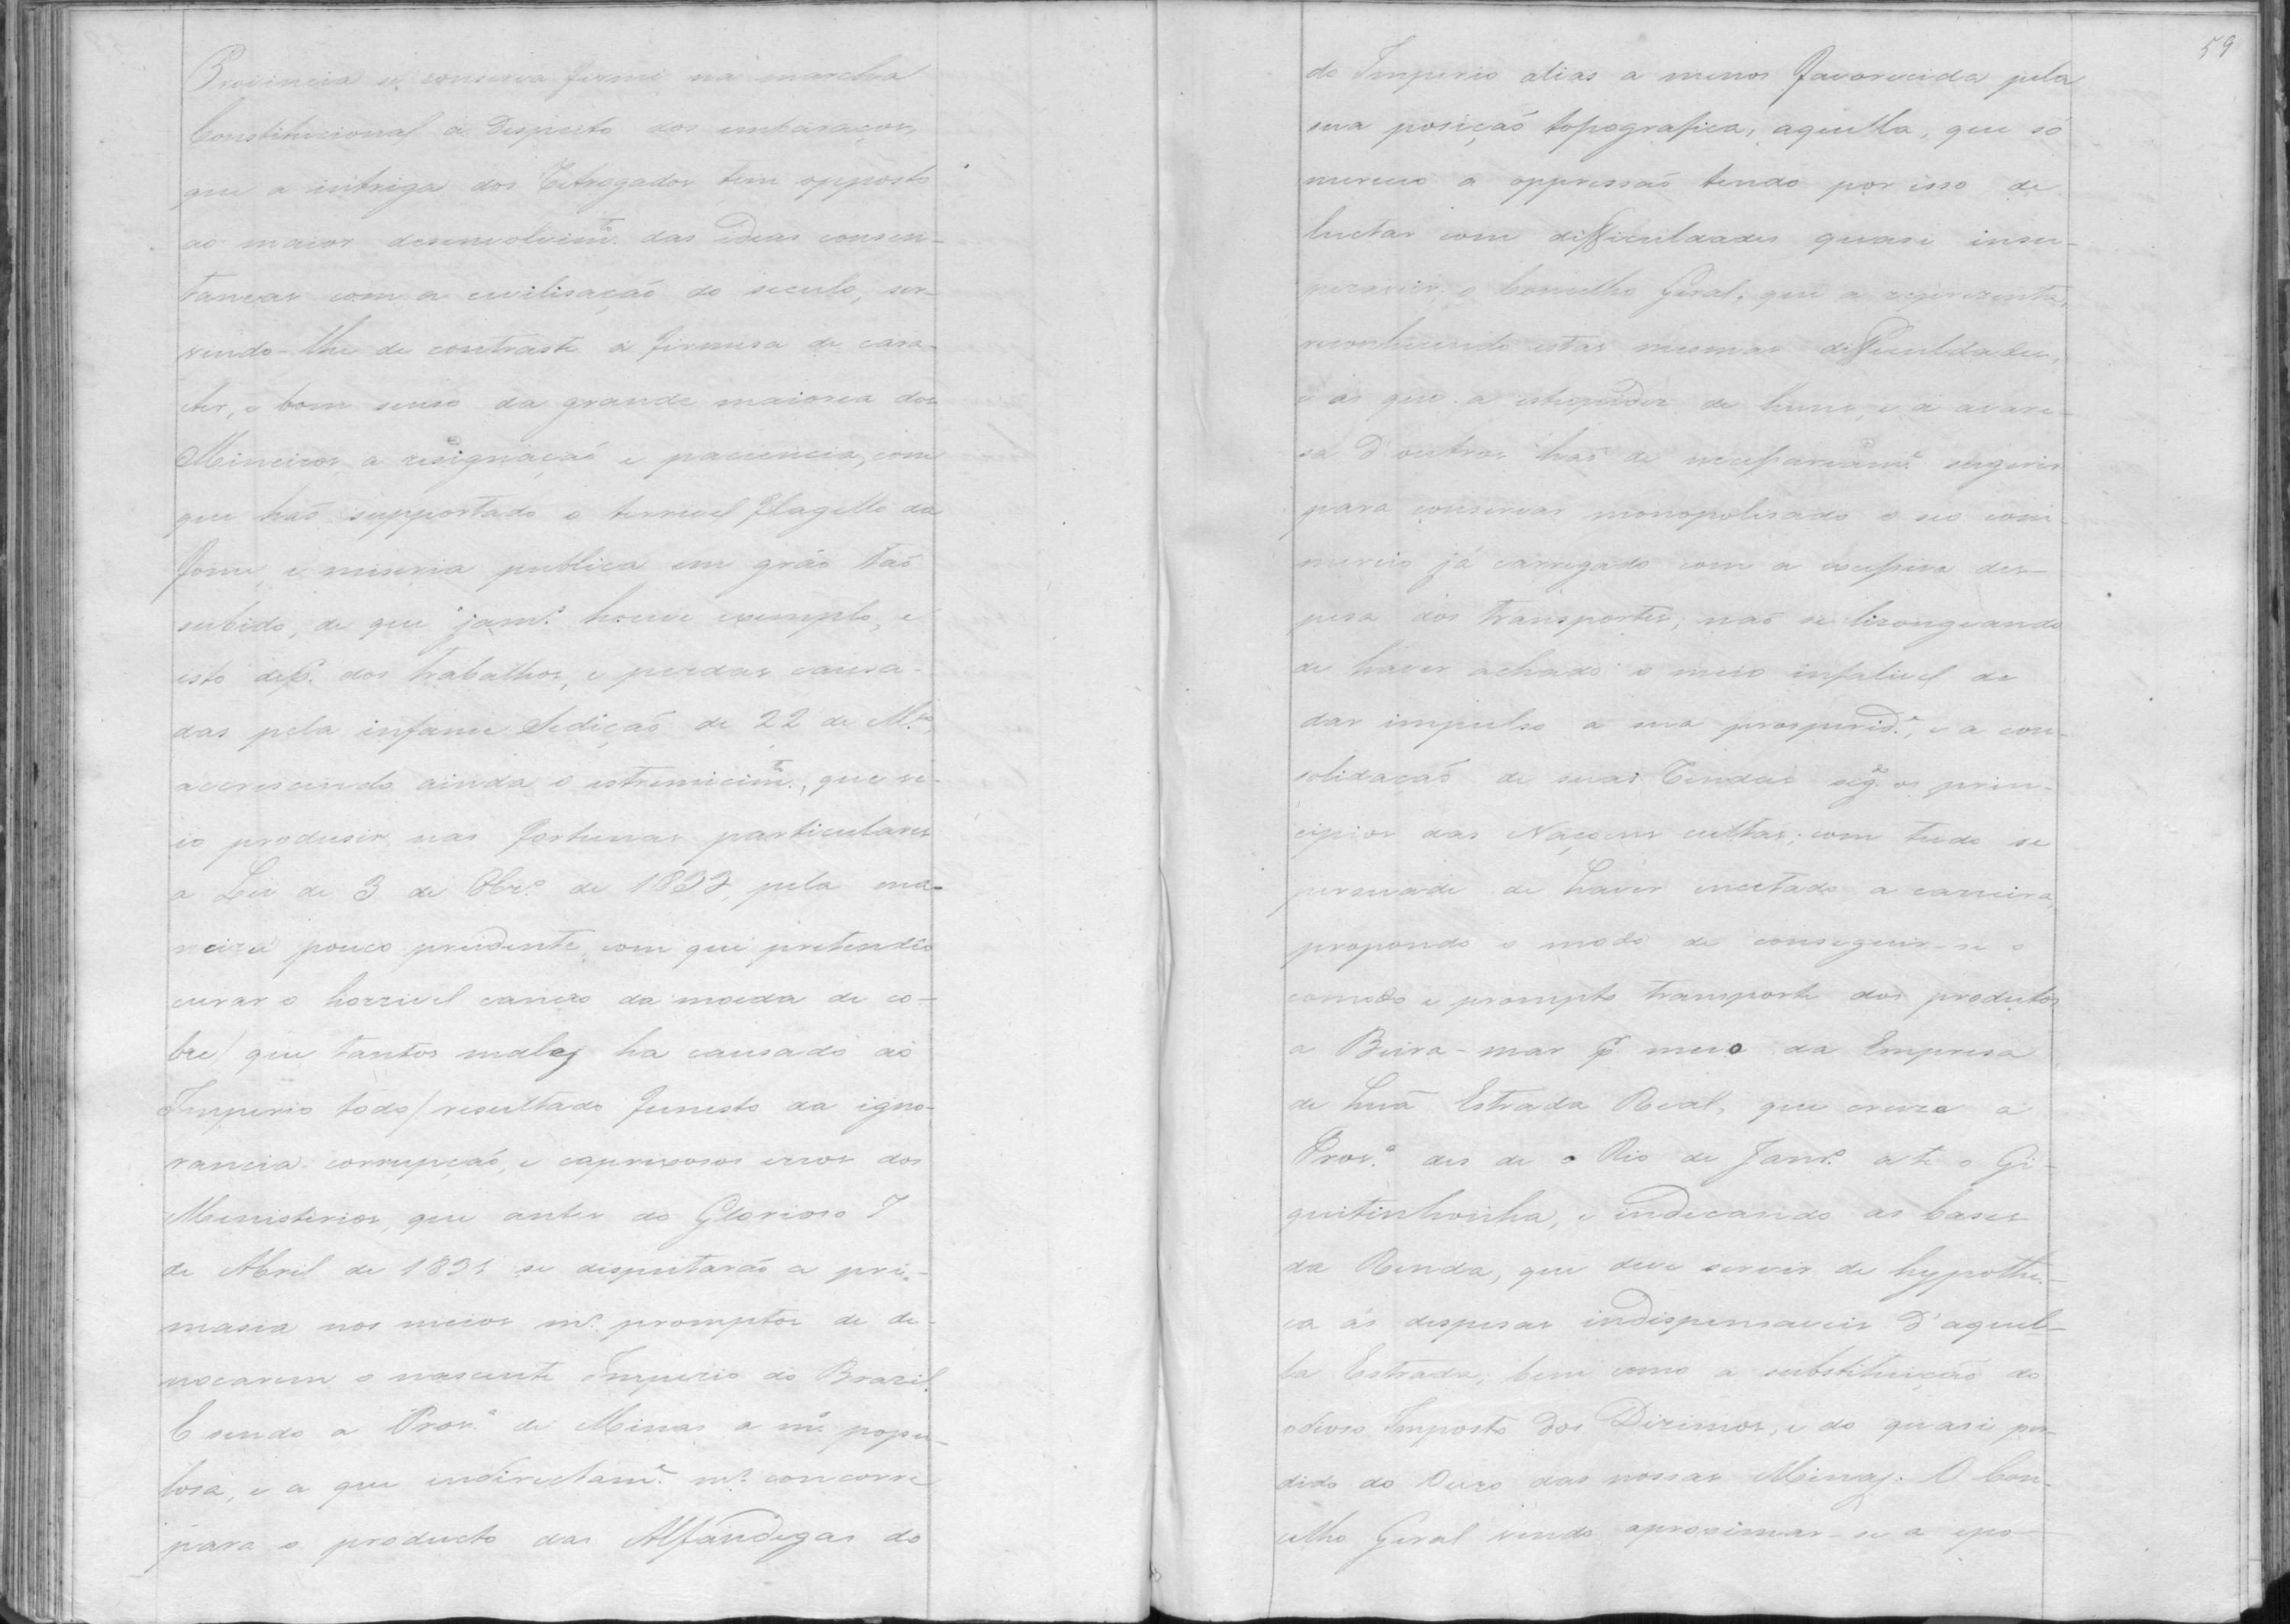 Provincia se conserva firme na marcha
Constitucional a Despeito dos embaraços,
que a intriga dos Retrogados tem opposto
ao maior desenvolvim.to das ideas consen-
taneas com a civilisação do seculo, ser-
vindo-lhe de contraste a firmesa de cara-
cter, o bom senso da grande maioria dos
Mineiros, a resignação e paciencia, com
que hão supportado o terrivel flagello da
fome, e miseria publica em gráo tão
subido, de que jam.s houve exemplo, e
isto dep.s dos trabalhos, e perdas causa-
das pela infame Sedição de 22 de M.ço,
acrescendo ainda o estremecim.to, que ve-
io produsir nas fortunas particulares
a Lei de 3 de Obr.o de 1833, pela ma-
neira pouco prudente, com que pretendeo
curar o horrivel cancro da moeda de co-
bre/ que tantos males ha causado ao
Imperio todo/ resultado funesto da igno-
rancia corrupção, e caprixosos erros dos
Ministerios, que antes do Glorioso 7
de Abril de 1831 se disputarão a pri-
masia nos meios m.s promptos de de-
nocarem o nascente Imperio do Brazil.
E sendo a Prov.a de Minas a m.s popu-
losa, e a que indirectam.e m.s concorre
para o producto das Alfandegas do
59
do Imperio alias a menos favorecida pela
sua posição topografica, aquella, que só
mereceo a oppressão tendo por isso de
luctar com difficuldades quasi insu-
peraveis, o Conselho Geral, que a representa,
reconhecendo estas mesmas difficuldades,
e as que a estupidez de huns, e a avare-
sa d'outros hão de necessariam.e sugerir
para conservar monopolisado o seo com-
mercio já carregado com a excessiva des-
pesa dos transportes; não se lisongeando
de haver achado o meio infalivel de
dar impulso a sua prosperid.e, e a con-
solidação de suas Rendas seg.do os prin-
cipios das Naçoens cultas; com tudo se
persuade de haver encetado a carreira,
propondo o modo de conseguir-se o
comodo e prompto transporte dos productos
a Beira-mar p. meio da Empresa
de huã Estrada Real, que cruze a
Prov.a des de o Rio de Jan.ro ate o Gi-
quitinhonha, e indicando as bases
da Renda, que deve servir de hypothe-
ca ás despesas indispensaveis d'aquel-
la Estrada, bem como a substituição do
odioso Imposto dos Dizimos, e do quasi per-
dido do Ouro das nossas Minas. O Con-
celho Geral vendo aproximar-se a epo-